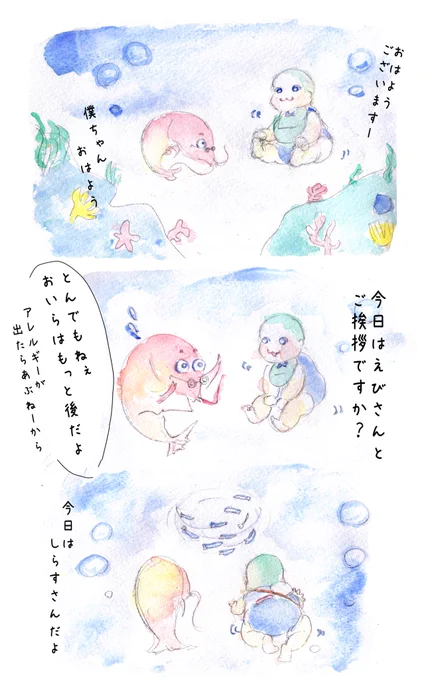 おはよう
ございますー
僕ちゃん
おはよう
今日はえびさんと
ご挨拶ですか？
とんでもねぇ
おいらはもっと後だよ
アレルギーが
出たらあぶねーから
今日は
しらすさんだよ